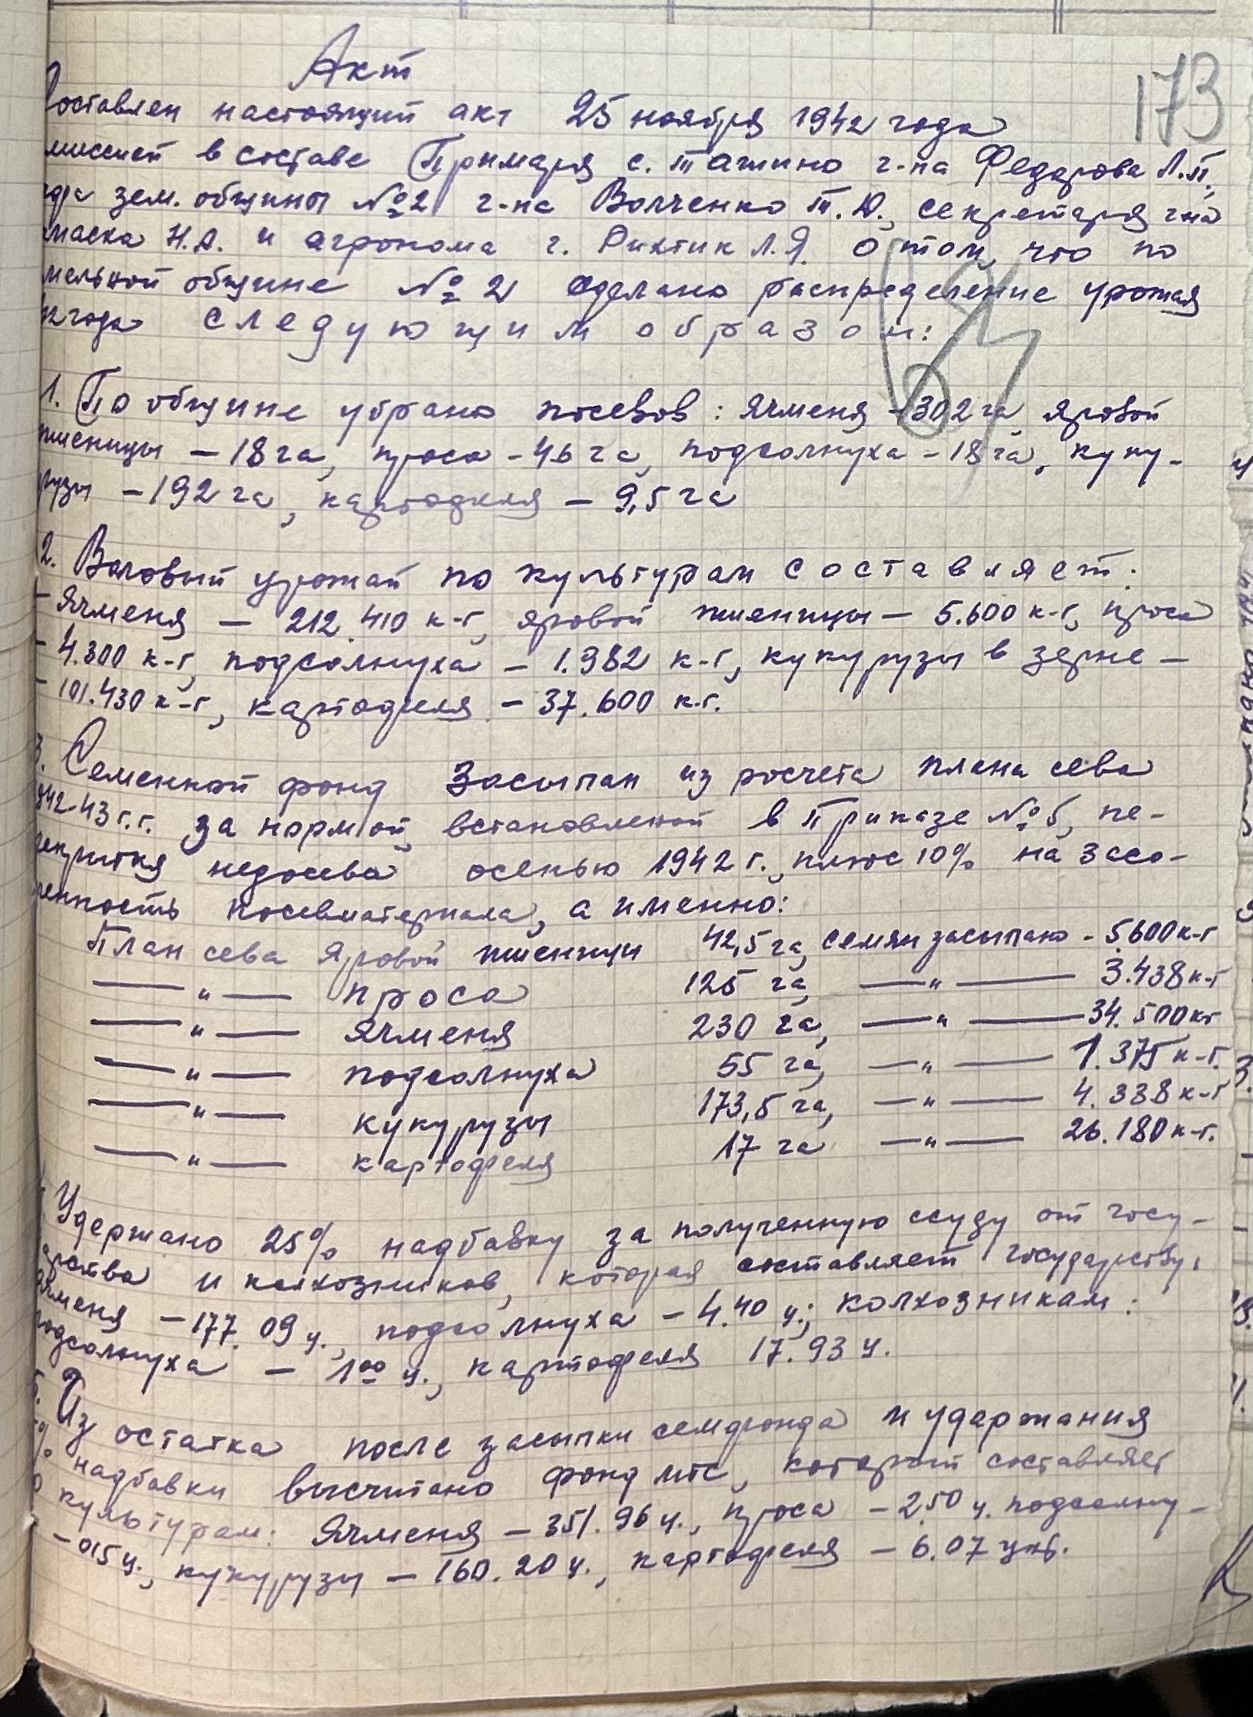 173
Акт
Составлен настоящий акт 25 ноября 1942 года
миссией в составе Примаря с. Ташино г-на Федорова Л.П.,
зем. общины №2 г-на Волченко Т.Д., секретаря г-на
Н.А. и агронома г. Рихтик Л.Я. о том, что по
мельной общине №2 сделано распределение урожая
42 года следующим образом:
1. По общине убрано посевов: ячменя - 302 га, яровой
пшеницы - 18 га, проса - 46 га, подсолнуха - 18 га, куку-
рузы - 192 га, картофеля - 9,5 га
2. Валовый урожай по культурам составляет:
- Ячменя - 212.410 к-г, яровой пшеницы - 5.600 к-г, проса
- 4.300 к-г, подсолнуха - 1.982 к-г, кукурузы в зерне -
- 101.430 к-г, картофеля - 37.600 к.г.
3. Семенной фонд засыпан из росчета плана сева
942-43 г.г. за нормой, встановленой в Приказе № 5, пе-
рекрытия недосева осенью 1942 г., плюс 10% на засо-
ренность посевматериала, а именно:
План сева яровой пшеницы 42,5 га, семян засыпано - 5.600 к-г
—"— проса 125 га, —"— 3.438 к-г
—"— ячменя 230 га, —"— 34.500 кг
—"— подсолнуха 55 га, —"— 1.375 к-г.
—"— кукурузы 173,5 га, —"— 4.338 к-г
—"— картофеля 17 га —"— 26.180 к-г.
Удержано 25% надбавку за полученную ссуду от госу-
дарства и колхозников, которая составляет государству:
ячменя - 177.09 ц., подсолнуха - 4.40 ц; колхозникам:
подсолнуха - 1.00 ц., картофеля 17.93 ц.
5. Из остатка после засыпки семфонда и удержания
% надбавки высчитано фонд мтс, который составляет
по культурам: Ячменя - 351.96 ц., проса - 2.50 ц. подсолну-
- 015 ц., кукурузы - 160.20 ц., картофеля - 6.07 цнт.